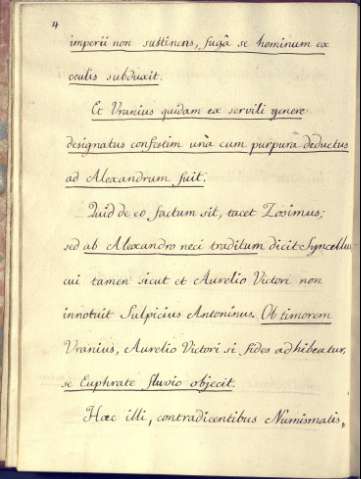 4
imperii non sustinens, fugâ se hominum ex
oculis subduxit.
Et Uranius quidam ex servili genere
designatus confestim unà cum purpurâ deductus
ad Alexandrum fuit.
Quid de eo factum sit, tacet Zosimus;
sed ab Alexandro neci traditum dicit Syncellus
cui tamen sicut et Aurelio Victori non
innotuit Sulpicius Antoninus. Ob timorem
Uranius, Aurelio Victori si fides adhibeatur,
se Euphrate fluvio objecit.
Hæc illi, contradicentibus Numismatis,